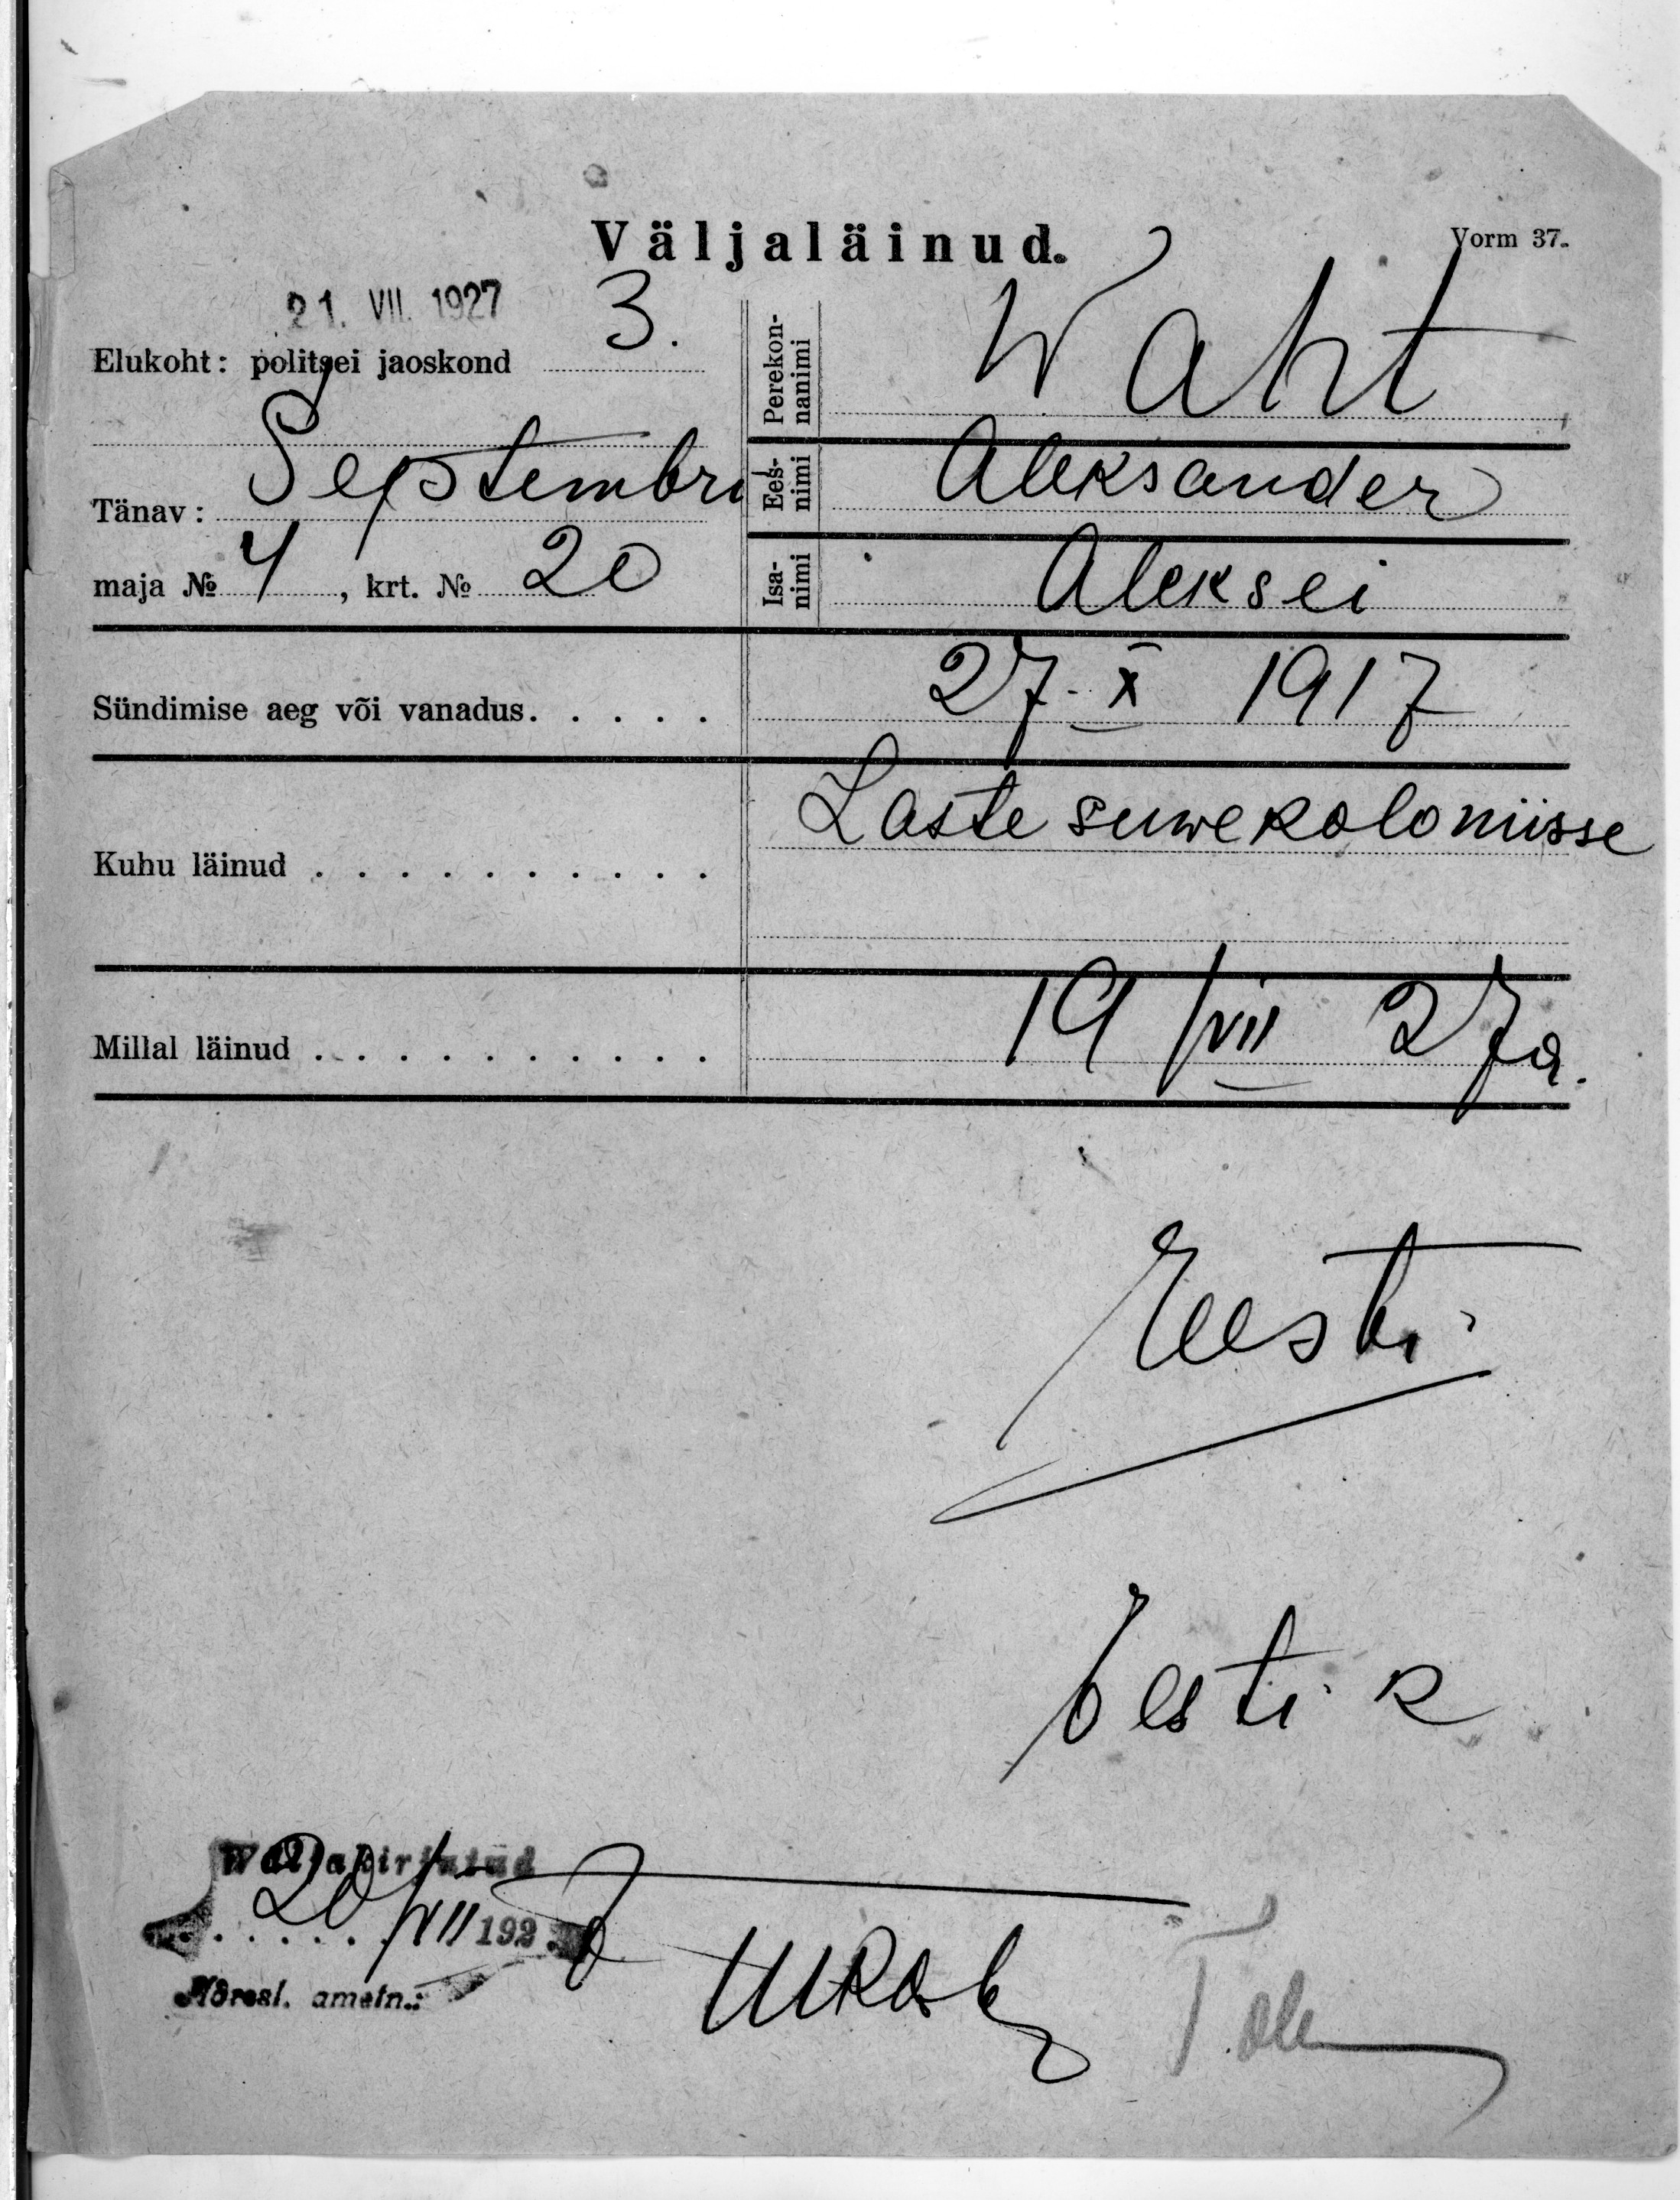 Väljaläinud.
Vorm 37.
21. VII. 1927
Elukoht: politsei jaoskond 3.
Tänav: Septembri
maja № 4, krt. № 20
Perekon-
nanimi
Waht
Ees-
nimi
Aleksander
Isa-
nimi
Aleksei
Sündimise aeg või vanadus. . . . . 27. X 1917
Kuhu läinud . . . . . . . . . . Laste suwekoloniisse
Millal läinud . . . . . . . . . . 19/VII 27 a.
Eesti
Eesti k
Wäljakirjutud
20/VII 1927
Adresl. ametn.: